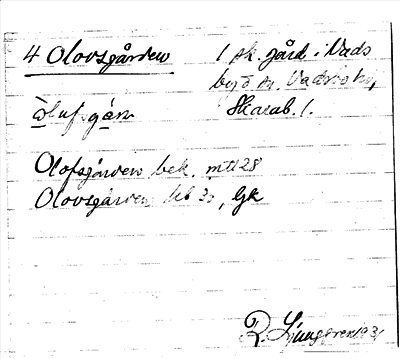 4 Olovsgården
1 sk. gård i Vads
by o sn. Vadsbo hd,
Skarab. l.
ɷlufsgán
Olofsgården bek. mtl 28
Olovsgården kb 30, Gk
R. Ljunggren 1931